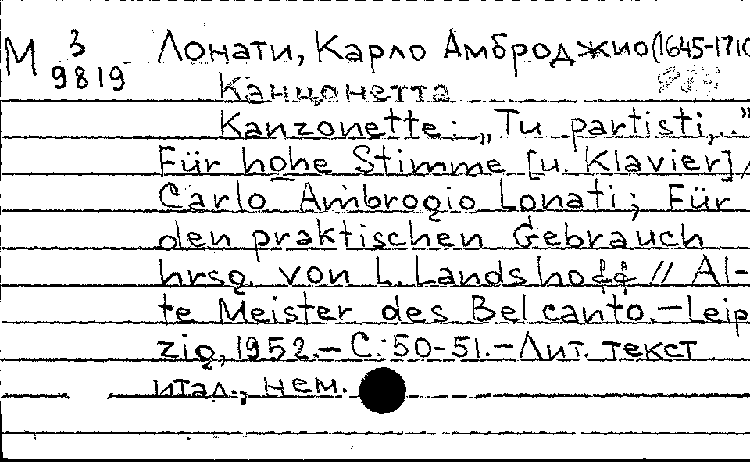 М 3/9819 Лонати, Карло Амброджио (1645-1710
Канцонетта
Kanzonette: „Tu partisti,..."
Für hohe Stimme [u. Klavier] /
Carlo Ambrogio Lonati; Für
den praktischen Gebrauch
hrsg. von L. Landshoff // Al-
te Meister des Bel canto. – Leip
zig, 1952. – С. 50-51. – Лит. текст
итал., нем.